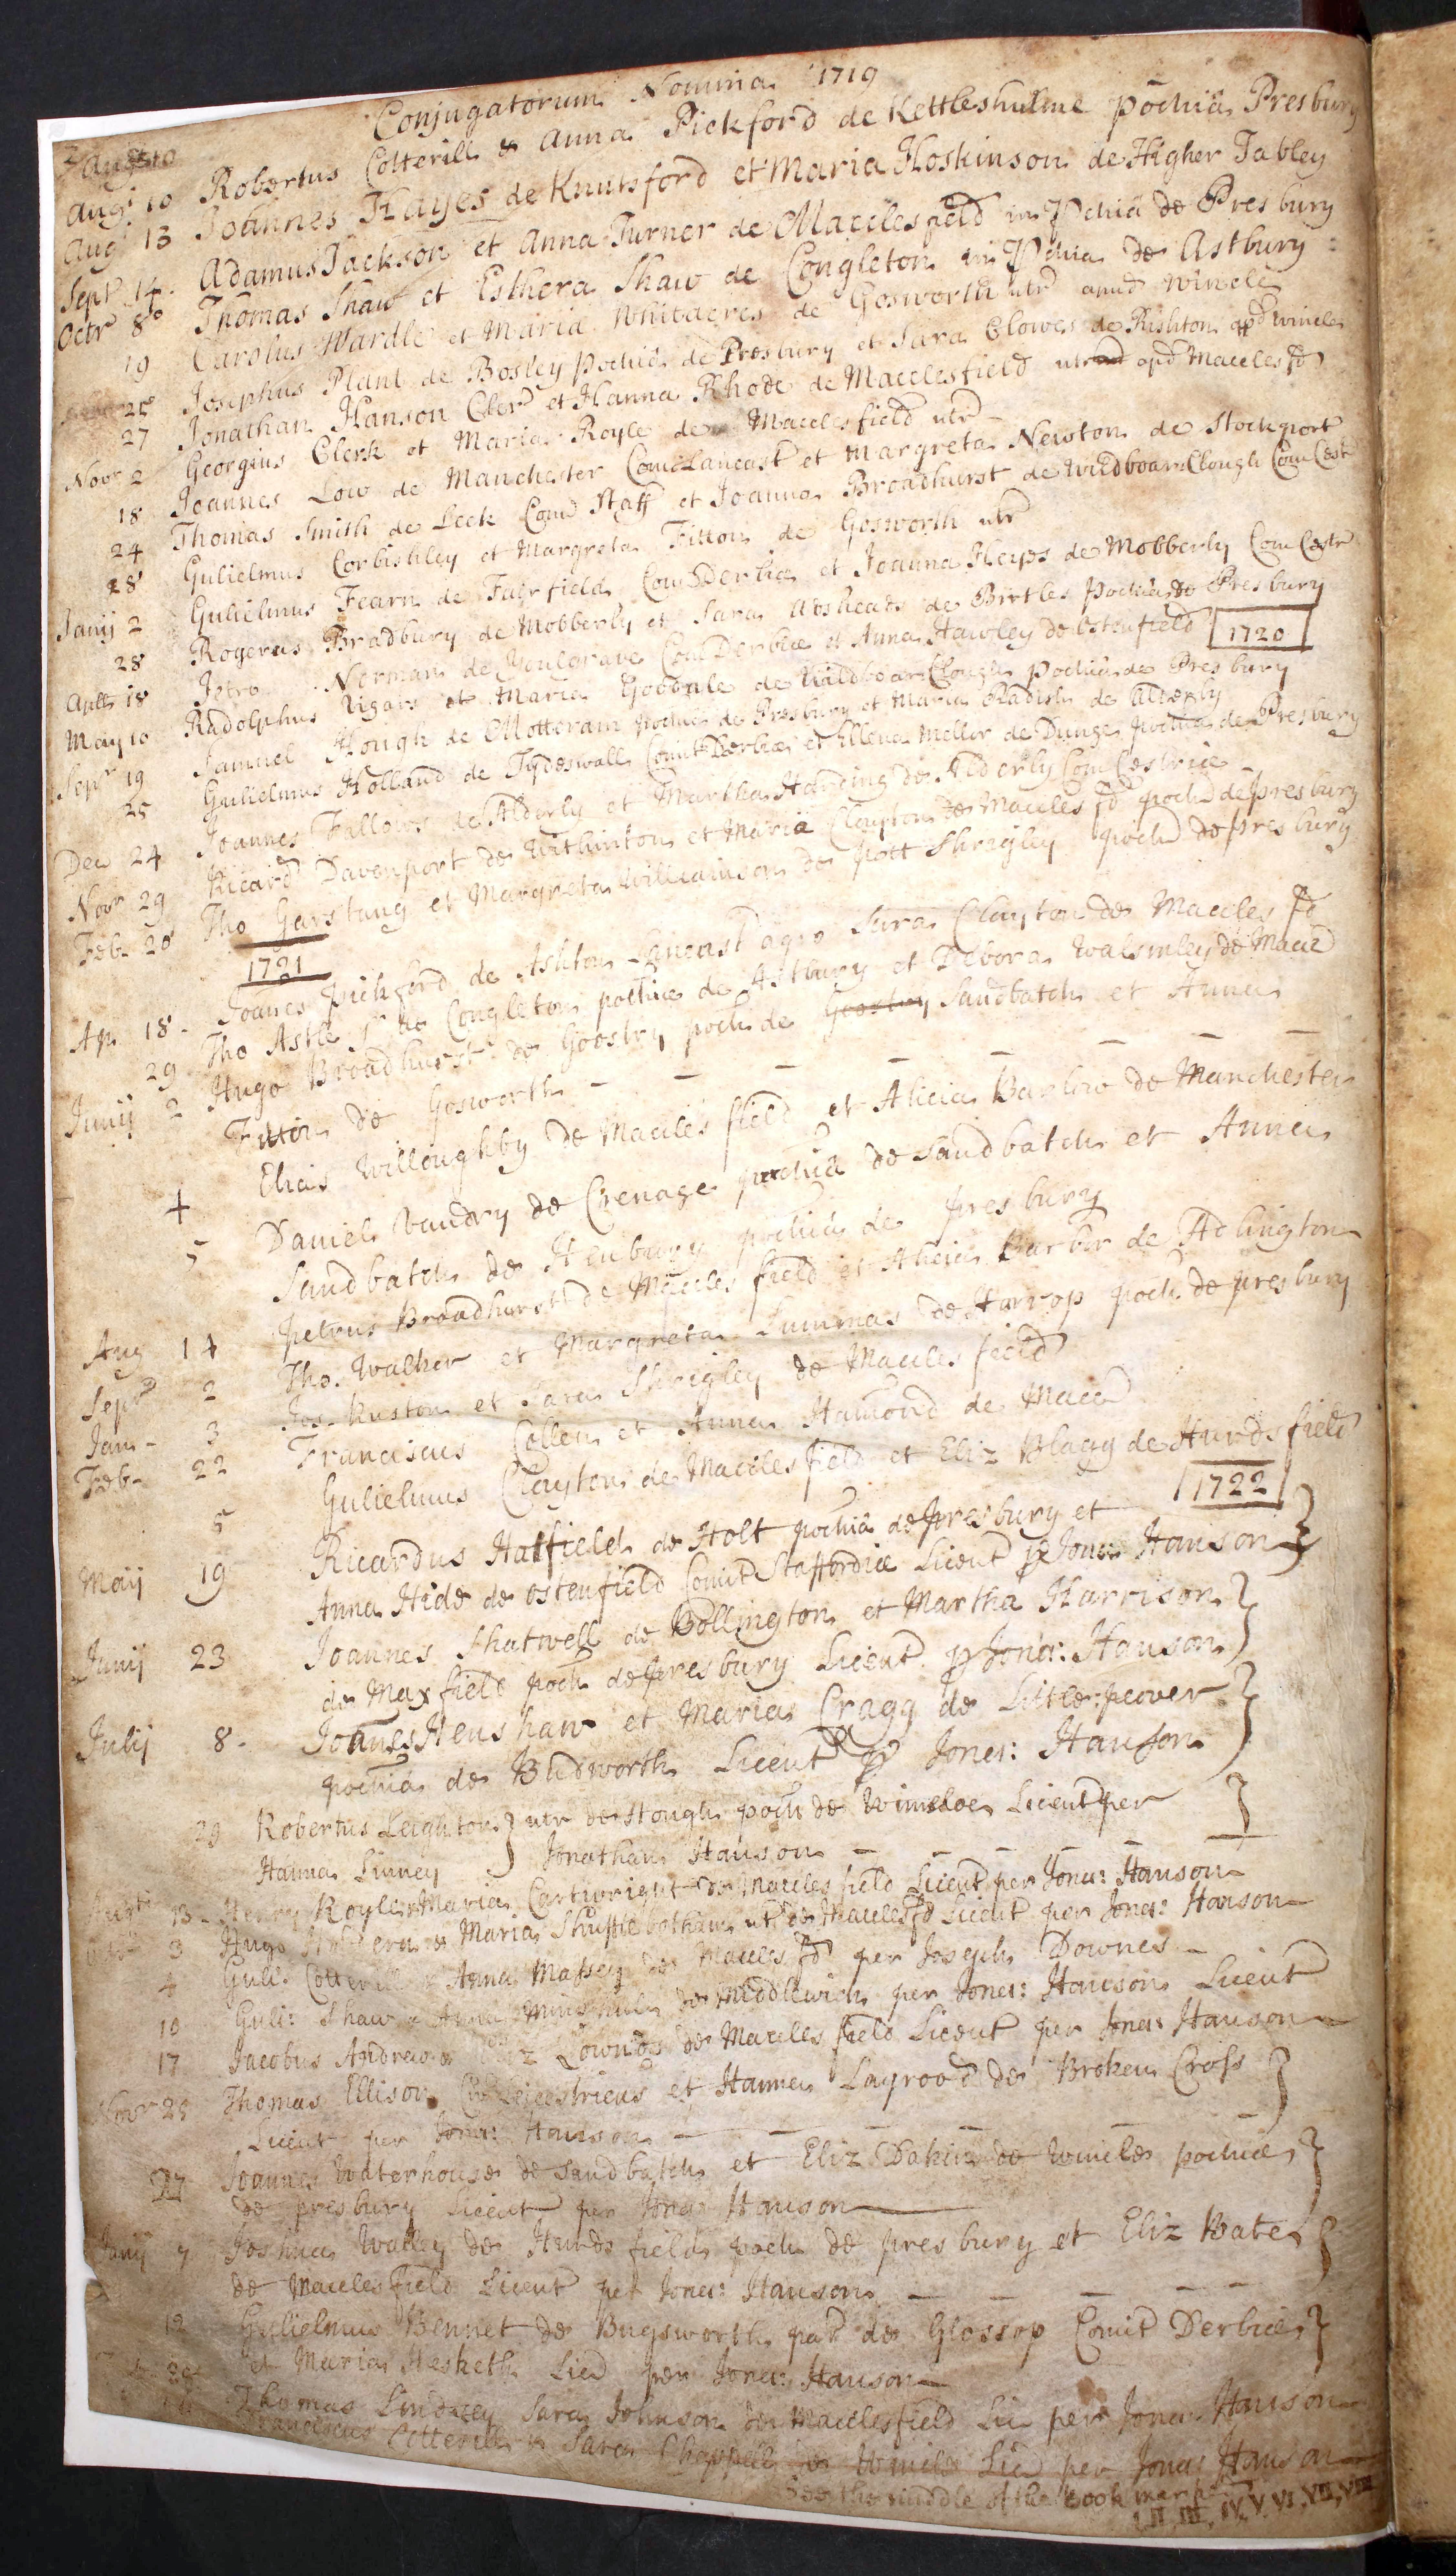 Conjugatorum Nomina 1719
Augt 10 Robertus Cotterill & Anna Pickford de Kettleshulme pochiâ Presbury
Augt 13 Johannes Hayes de Knutsford et Maria Hoskinson de Higher Tabley
Septr 14 Adamus Jackson et Anna Turner de Macclesfield in Pchiâ de Presbury
Octr 8o Thomas Shaw et Esthera Shaw de Congleton in Pchia de Astbury
19 Carolus Wardle et Maria Whitacres de Gosworth utr apud Wincle
25 Josephus Plant de Bosley pochiâ de Presbury et Sara Clowes de Rishton apd Wincle
27 Jonathan Hanson Cler et Hanna Rhode de Macclesfield apd Macclesfd
Novr 2 Georgius Clerk et Maria Royle de Macclesfield utr
18 Joannes Low de Manchester Com Lancast et Margreta Newton de Stockport
24 Thomas Smith de Leek Com Staff et Joanna Broadhurst de Wildboar Clough Com Cest
28 Gulielmus Corbishley et Margreta Fitton de Gosworth utr
Janij 2 Gulielmus Fearn de Fairfield Com Derbiæ et Joanna Heyes de Mobberly Com Cestr
28 Rogerus Bradbury de Mobberly et Sara Adshead de Birtles pochiâ de Presbury
1720
Aplls 18 Petro Norman de Youlgrave Com Derbiæ et Anna Hawley de Ostenfield
May 10 Radolphus Vigars et Maria Goodale de Wildboar Clough pochiâ de Presbury
Sepr 19 Samuel Hough de Mottoram pochiâ de Presbury et Maria Radish de Alderly
25 Gulielmus Holland de Tydeswall Comit Derbiæ et Ellena Mellor de Dunge pochiâ de Presbury
Dec 24 Joannes Fallows de Alderly et Martha Harding de Alderly Com Cestriæ
Novr 29 Ricard Davenport de Withinton et Maria Clayton de Macclesfd poch de presbury
Feb 20 Tho Garstang et Margreta Williamson de Pott Shrigley poch de presbury
1721
Ap 18 Joanes Pickford de Ashton Lancast Sara Clayton de Macclesfd
29 Tho Astle de Congleton pochiæ de Astbury et Debora Walmsley de Maccd
Junij 2 Hugo Broadhurst de Goostry poch de Goostry Sandbatch et Anna
Fitton de Gosworth
+ Elias Willoughby de Macclesfield et Alicia Barlow de Manchester
5 Daniel Vaudry de Crenage pochiâ de Sandbatch et Anna
Sandbatch de Henbury pochiâ de presbury
Aug 14 Petrus Broadhurst de Macclesfield et Alicia Barber de Adlington
Sepr 2 Tho. Walker et Margreta Lummas de Harrop poch de presbury
Jan 3 Jos. Ruston et Sara Shrigley de Macclesfield
Feb 22 Franciscus Collen et Anna Hamond de Maccd
5 Gulielmus Clayton de Macclesfield et Eliz Blagg de Hurdsfield
1722
Maij 19 Ricardus Hatfield de Holt pochiâ de presbury et
Anna Hide de Ostenfield Comit Staffordiæ Licent p Jona: Hanson
Junij 23 Joannes Shatwell de Bollington et Martha Harrison
de Maxfield poch de presbury Licent p Jona: Hanson
Julij 8 Joanes Henshaw et Maria Cragg de Little peover
pochiâ de Budworth Licent p Jona: Hanson
29 Robertus Leighton } utr de Hough poch de Wimsloe Licent per
Hanna Linney } Jonathan Hanson
13 Henry Royle & Maria Cartwright de Macclesfield Licent per Jona: Hanson
3 Hugo & Maria Shufflebotham utr de Macclesfd Licent per Jona: Hanson
4 Guli: Cotterill & Anna Massey de Macclesfd per Joseph Downes
10 Guli: Shaw & Anna Minshull de Middlewich per Jona: Hanson Licent
17 Jacobus Andrew & Eliz Lownds de Macclesfield Licent per Jona: Hanson
Novr 23 Thomas Ellison et Hanna Layrood de Broken Cross
Licent per Jona: Hanson
27 Joannes Waterhouse de Sandbatch et Eliz Dakin de Wincle pochiæ
de presbury Licent per Jona: Hanson
Janij 7 Joshua Walley de Hurdsfield poch de presbury et Eliz Bate
de Macclesfield Licent per Jona: Hanson
12 Gulielmus Bennet de Bugsworth par de Glossop Comit Derbiæ
et Maria Hesketh Licd per Jona: Hanson
Thomas Lindzey Sara Johnson de Macclesfield Lic per Jona: Hanson
Franciscus Cotterill & Sara Chappell de Wincle Lic per Jona: Hanson
See the middle of the Book mark'd
I, II, III, IV, V, VI, VII, VIII